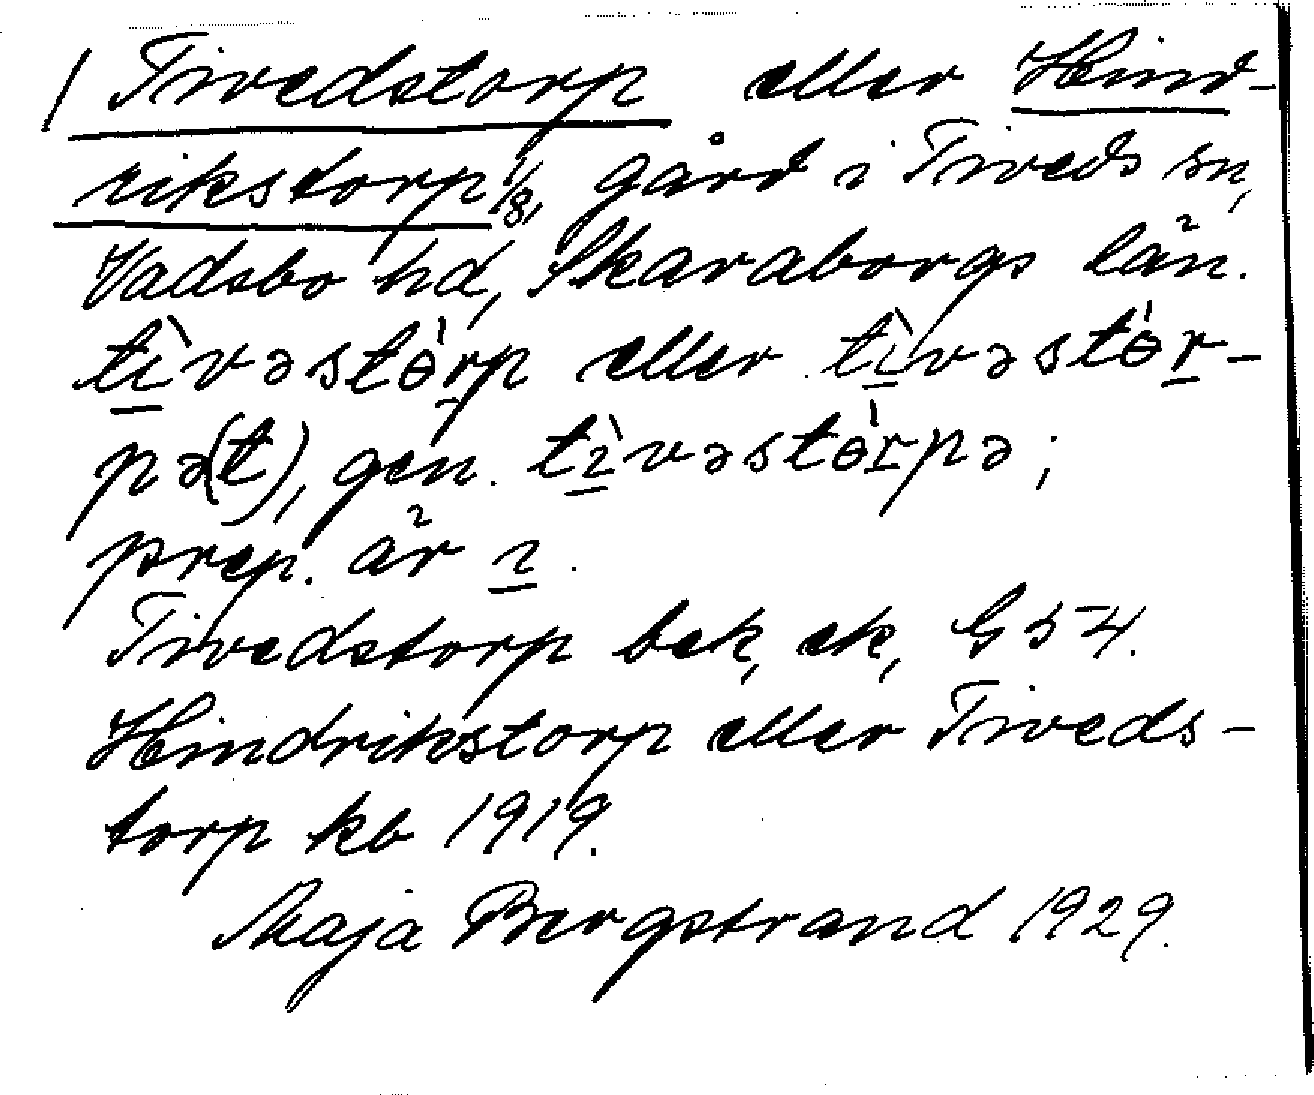 / Tivedstorp eller Hind-
rikstorp 1/8, gård i Tiveds sn,
Vadsbo hd, Skaraborgs län.
tı̀vəstɵ́rp eller tı̀vəstɵ́r-
pə(t), gen. tı̀vəstɵ́rpə;
prep. är ı.
Tivedstorp bek, ek, G 54.
Hindrikstorp eller Tiveds-
torp kb 1919.
Maja Bergstrand 1929.